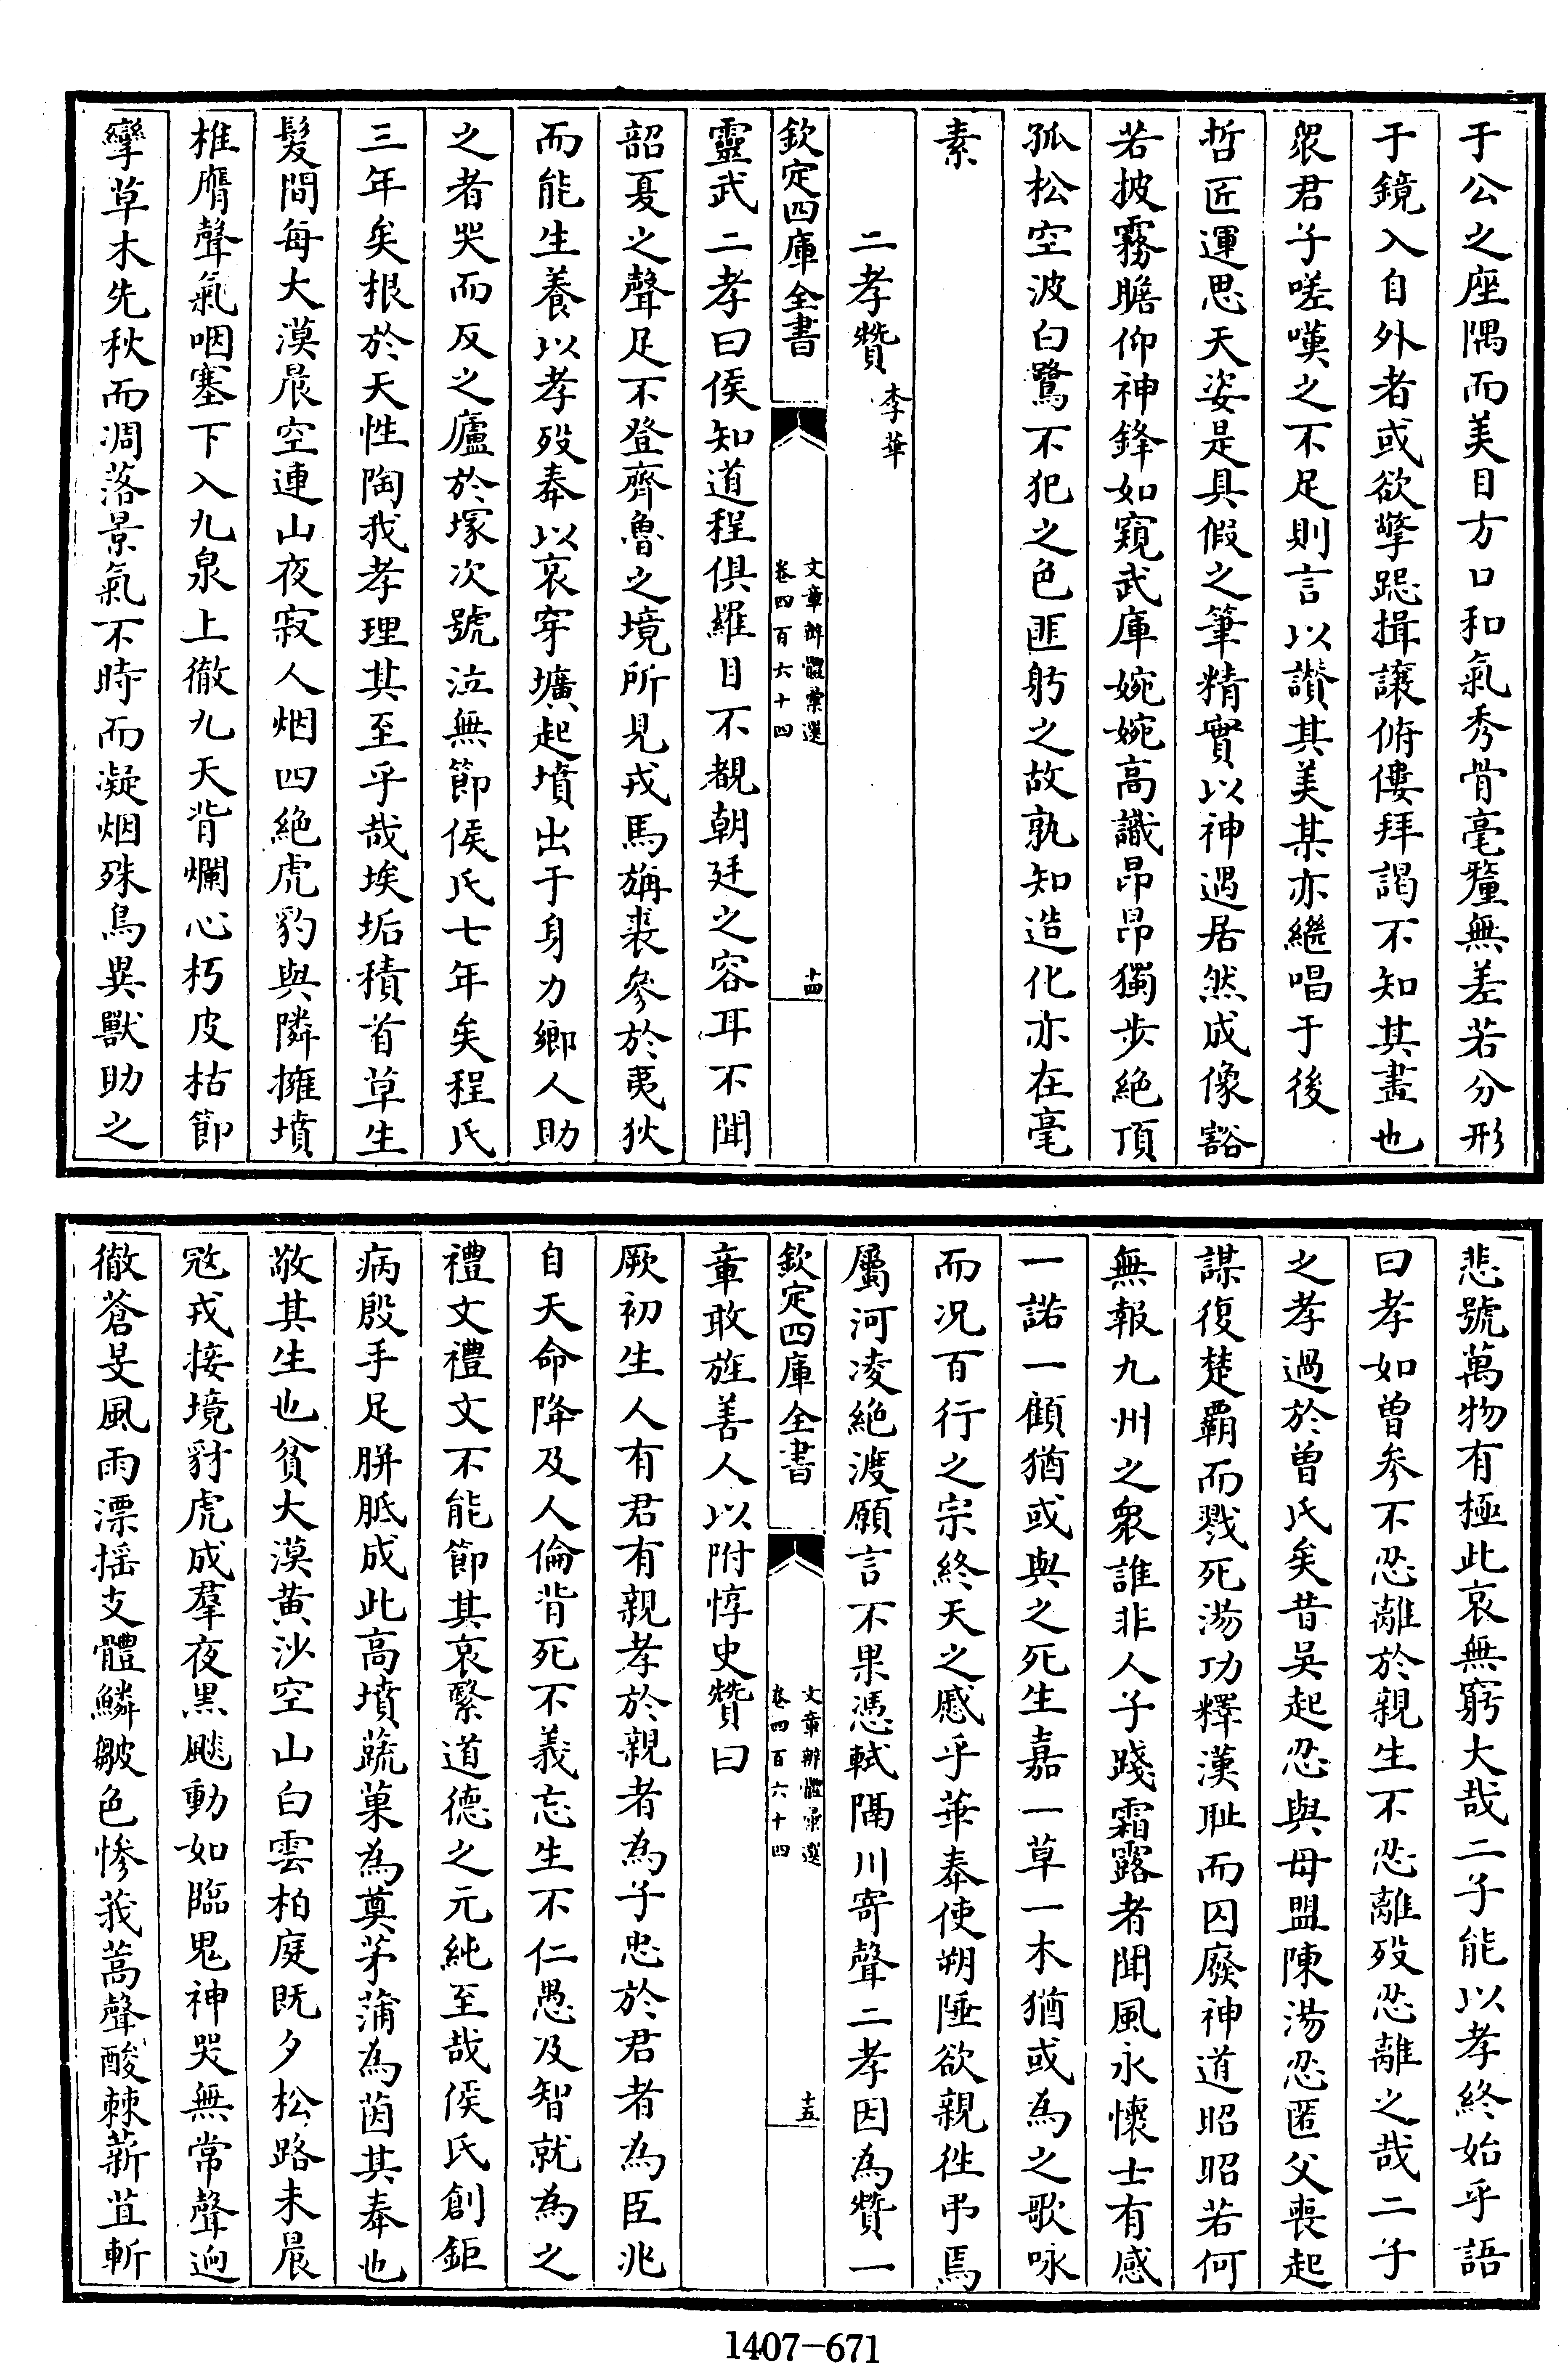 于公之座隅而美目方口和氣秀骨毫釐無差若分形
于鏡入自外者或欲擎跽揖讓俯僂拜謁不知其畫也
衆君子嗟嘆之不足則言以讃其美某亦繼唱于後
哲匠運思天姿是具假之筆精實以神遇居然成像豁
若披霧瞻仰神鋒如窺武庫婉婉高識昂昂獨步絶頂
孤松空波白鷺不犯之色匪躬之故孰知造化亦在毫
素
二孝贊 李華
欽定四庫全書 文章辨體彙選 卷四百六十四 十四
靈武二孝曰侯知道程俱羅目不覩朝廷之容耳不聞
韶夏之聲足不登齊魯之境所見戎馬旃裘參於夷狄
而能生養以孝歿奉以哀穿壙起墳出于身力鄉人助
之者哭而反之廬於塚次號泣無節侯氏七年矣程氏
三年矣根於天性陶我孝理其至乎哉埃垢積首草生
髮間每大漠晨空連山夜寂人烟四絶虎豹與隣擁墳
椎膺聲氣咽塞下入九泉上徹九天背爛心朽皮枯節
攣草木先秋而凋落景氣不時而凝烟殊鳥異獸助之
悲號萬物有極此哀無窮大哉二子能以孝終始乎語
曰孝如曾参不忍離於親生不忍離歿忍離之哉二子
之孝過於曾氏矣昔吳起忍與母盟陳湯忍匿父喪起
謀復楚霸而戮死湯功釋漢耻而囚廢神道昭昭若何
無報九州之衆誰非人子踐霜露者聞風永懷士有感
一諾一顧猶或與之死生嘉一草一木猶或為之歌咏
而况百行之宗終天之慼乎華奉使朔陲欲親徃弔焉
屬河凌絶渡願言不果憑軾隔川寄聲二孝因為贊一
章敢旌善人以附惇史贊曰
欽定四庫全書 文章辨體彙選 卷四百六十四 十五
厥初生人有君有親孝於親者為子忠於君者為臣兆
自天命降及人倫背死不義忘生不仁愚及智就為之
禮文禮文不能節其哀繄道德之元純至哉侯氏創鉅
病殷手足胼胝成此高墳蔬菓為奠茅蒲為茵其奉也
敬其生也貧大漠黄沙空山白雲柏庭既夕松路未晨
冦戎接境豺虎成羣夜黒飈動如臨鬼神哭無常聲逈
徹蒼旻風雨漂揺支體鱗皴色慘莪蒿聲酸棘薪苴斬
1407-671